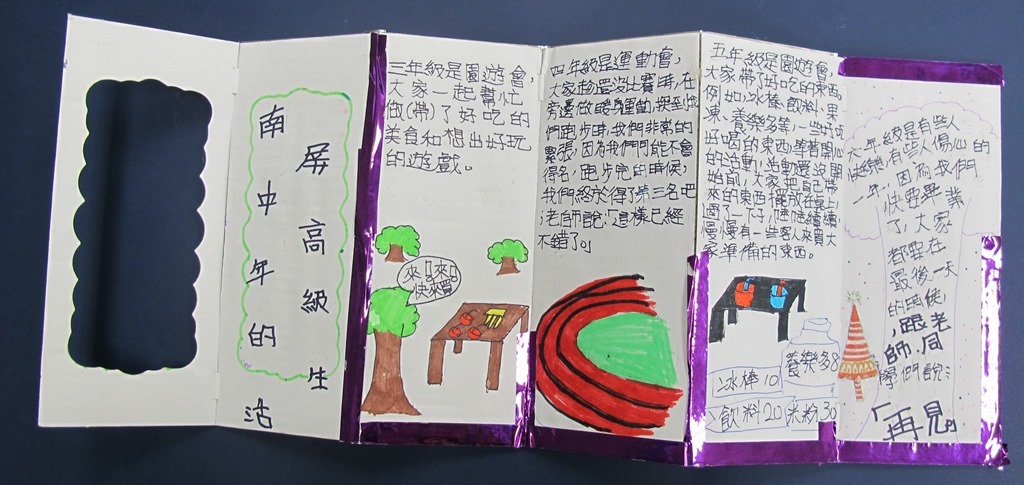 南屏中高年級的生活
三年級是園遊會,
大家一起幫忙
做(帶)了好吃的
美食和想出好玩
的遊戲。
快來買
四年級是運動會,
大家趁還沒比賽時,在
旁邊做暖身運動,換到我
們跑步時,我們非常的
緊張,因為我們可能不會
得名,跑步完的時候,
我們終於得了第三名吧
,老師說:「這樣已經
不錯了。」
五年級是園遊會,
大家帶了好吃的東西,
例如:冰棒、飲料、果
凍、養樂多等,一些好吃
好喝的東西,等著開心
的活動,活動還沒開
始前,大家把自己帶
來的東西擺放在桌上,
過了一下子,陸陸續續,
慢慢有一些客人來買大
家準備的東西。
養樂多8
冰棒10
飲料20
米粉30
六年級是有些人
快樂,有些人傷心的
一年,因為我們
快要畢業
了,大家
都要在
最後一天
的時候
,跟老
師、同
學們說:
「再見」